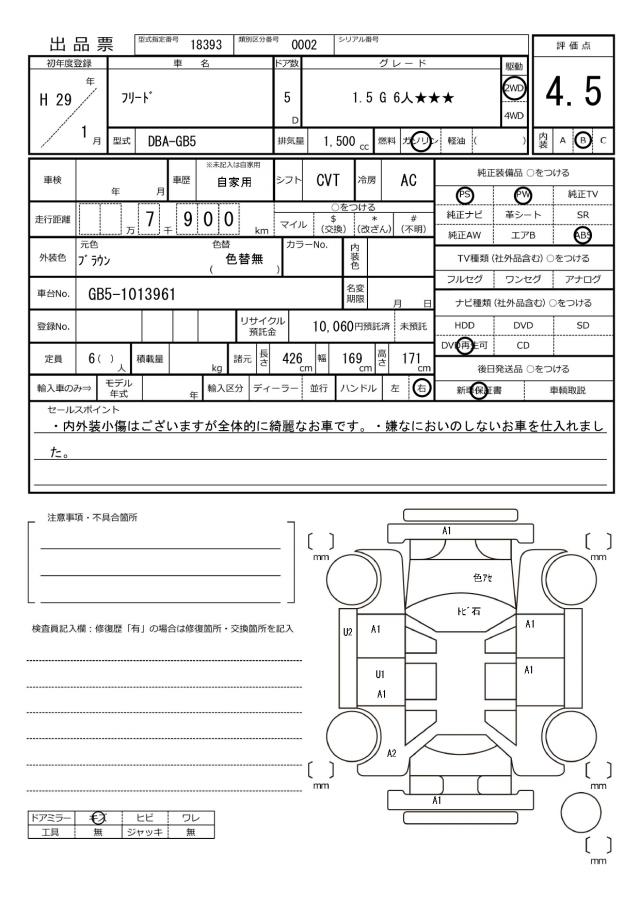 出品票
型式指定番号 18393 類別区分番号 0002 シリアル番号
評価点
4.5
内装 A B C
初年度登録 車名 ドア数 グレード 駆動
H 29 年 1 月
フリード 5 D 1.5 G 6人★★★ 2WD 4WD
型式 DBA-GB5 排気量 1,500 cc 燃料 ガソリン 軽油 ( )
車検 年 月 車歴 ※未記入は自家用 自家用 シフト CVT 冷房 AC
走行距離 万 7 千 900 km ○をつける
マイル $ (交換) * (改ざん) # (不明)
外装色 元色 ブラウン 色替 ( 色替無 ) カラーNo. 内装色
車台No. GB5-1013961 名変期限 月 日
登録No. リサイクル預託金 10,060円預託済 未預託
定員 6( )人 積載量 kg 諸元 長さ 426cm 幅 169cm 高さ 171cm
輸入車のみ⇒ モデル年式 年 輸入区分 ディーラー 並行 ハンドル 左 右
純正装備品 ○をつける
PS PW 純正TV
純正ナビ 革シート SR
純正AW エアB ABS
TV種類(社外品含む)○をつける
フルセグ ワンセグ アナログ
ナビ種類(社外品含む)○をつける
HDD DVD SD
DVD再生可 CD
後日発送品 ○をつける
新車保証書 車輌取説
セールスポイント
・内外装小傷はございますが全体的に綺麗なお車です。・嫌なにおいのしないお車を仕入れまし
た。
注意事項・不具合箇所
検査員記入欄：修復歴「有」の場合は修復箇所・交換箇所を記入
ドアミラー キズ ヒビ ワレ
工具 無 ジャッキ 無
A1
〔 〕mm 〔 〕mm
色アセ
トビ石
U2 A1 A1
U1
A1 A1
A2
〔 〕mm 〔 〕mm
A1
〔 〕mm